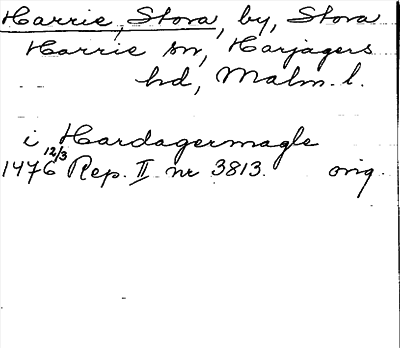 Harrie, Stora, by, Stora
Harrie sn, Harjagers
hd, Malm. l.
i Hardagermagle
1476 12/3 Rep. II nr 3813. orig.